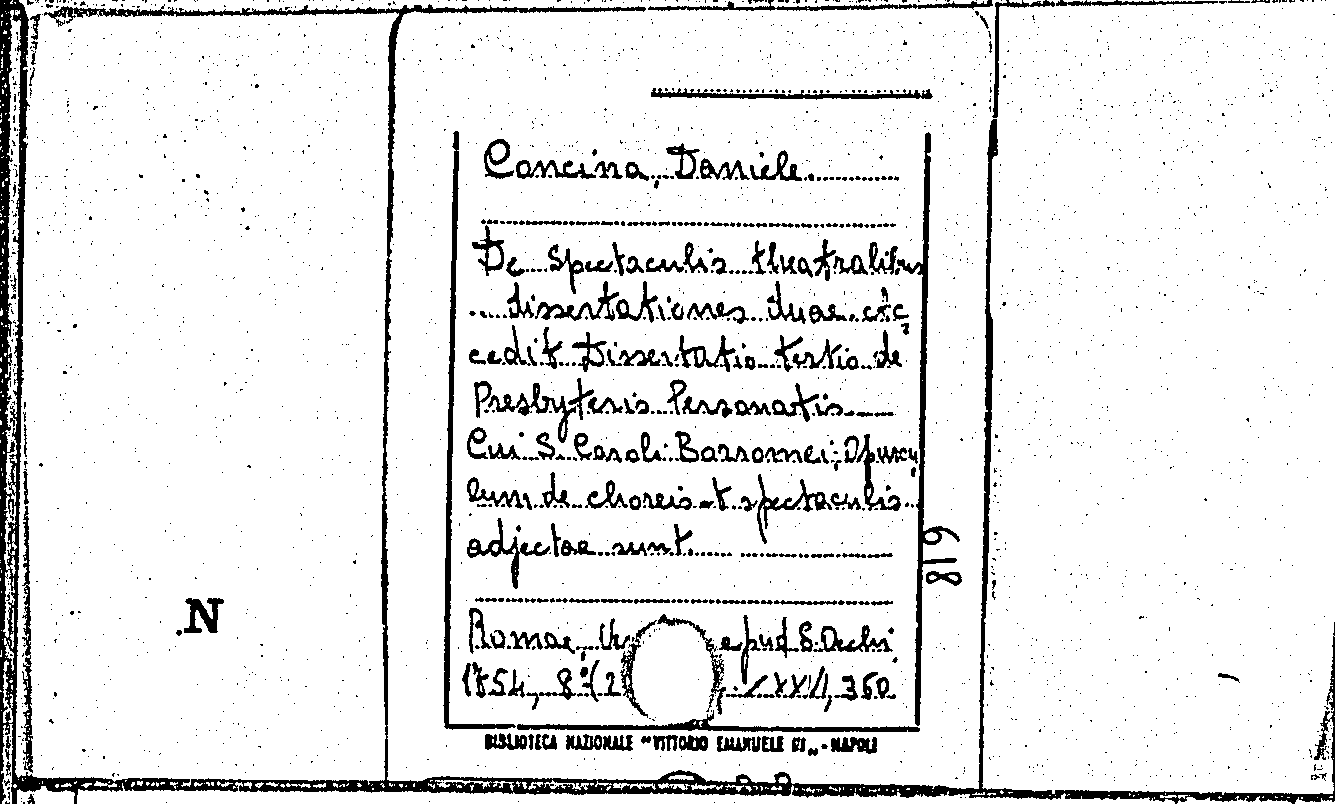 Concina, Daniele.
De Spectaculis theatralibus
dissertationes duae. 
cedit Dissertatio tertia de
Presbyteris Personatis
Cui S. Caroli Borromei; Opuscu
lum de choreis et spectaculis
adjectae sunt.
819
N
Romae, apud S. Occhi
1754, 8° (2 XXVI, 350
BIBLIOTECA NAZIONALE "VITTORIO EMANUELE III" - NAPOLI